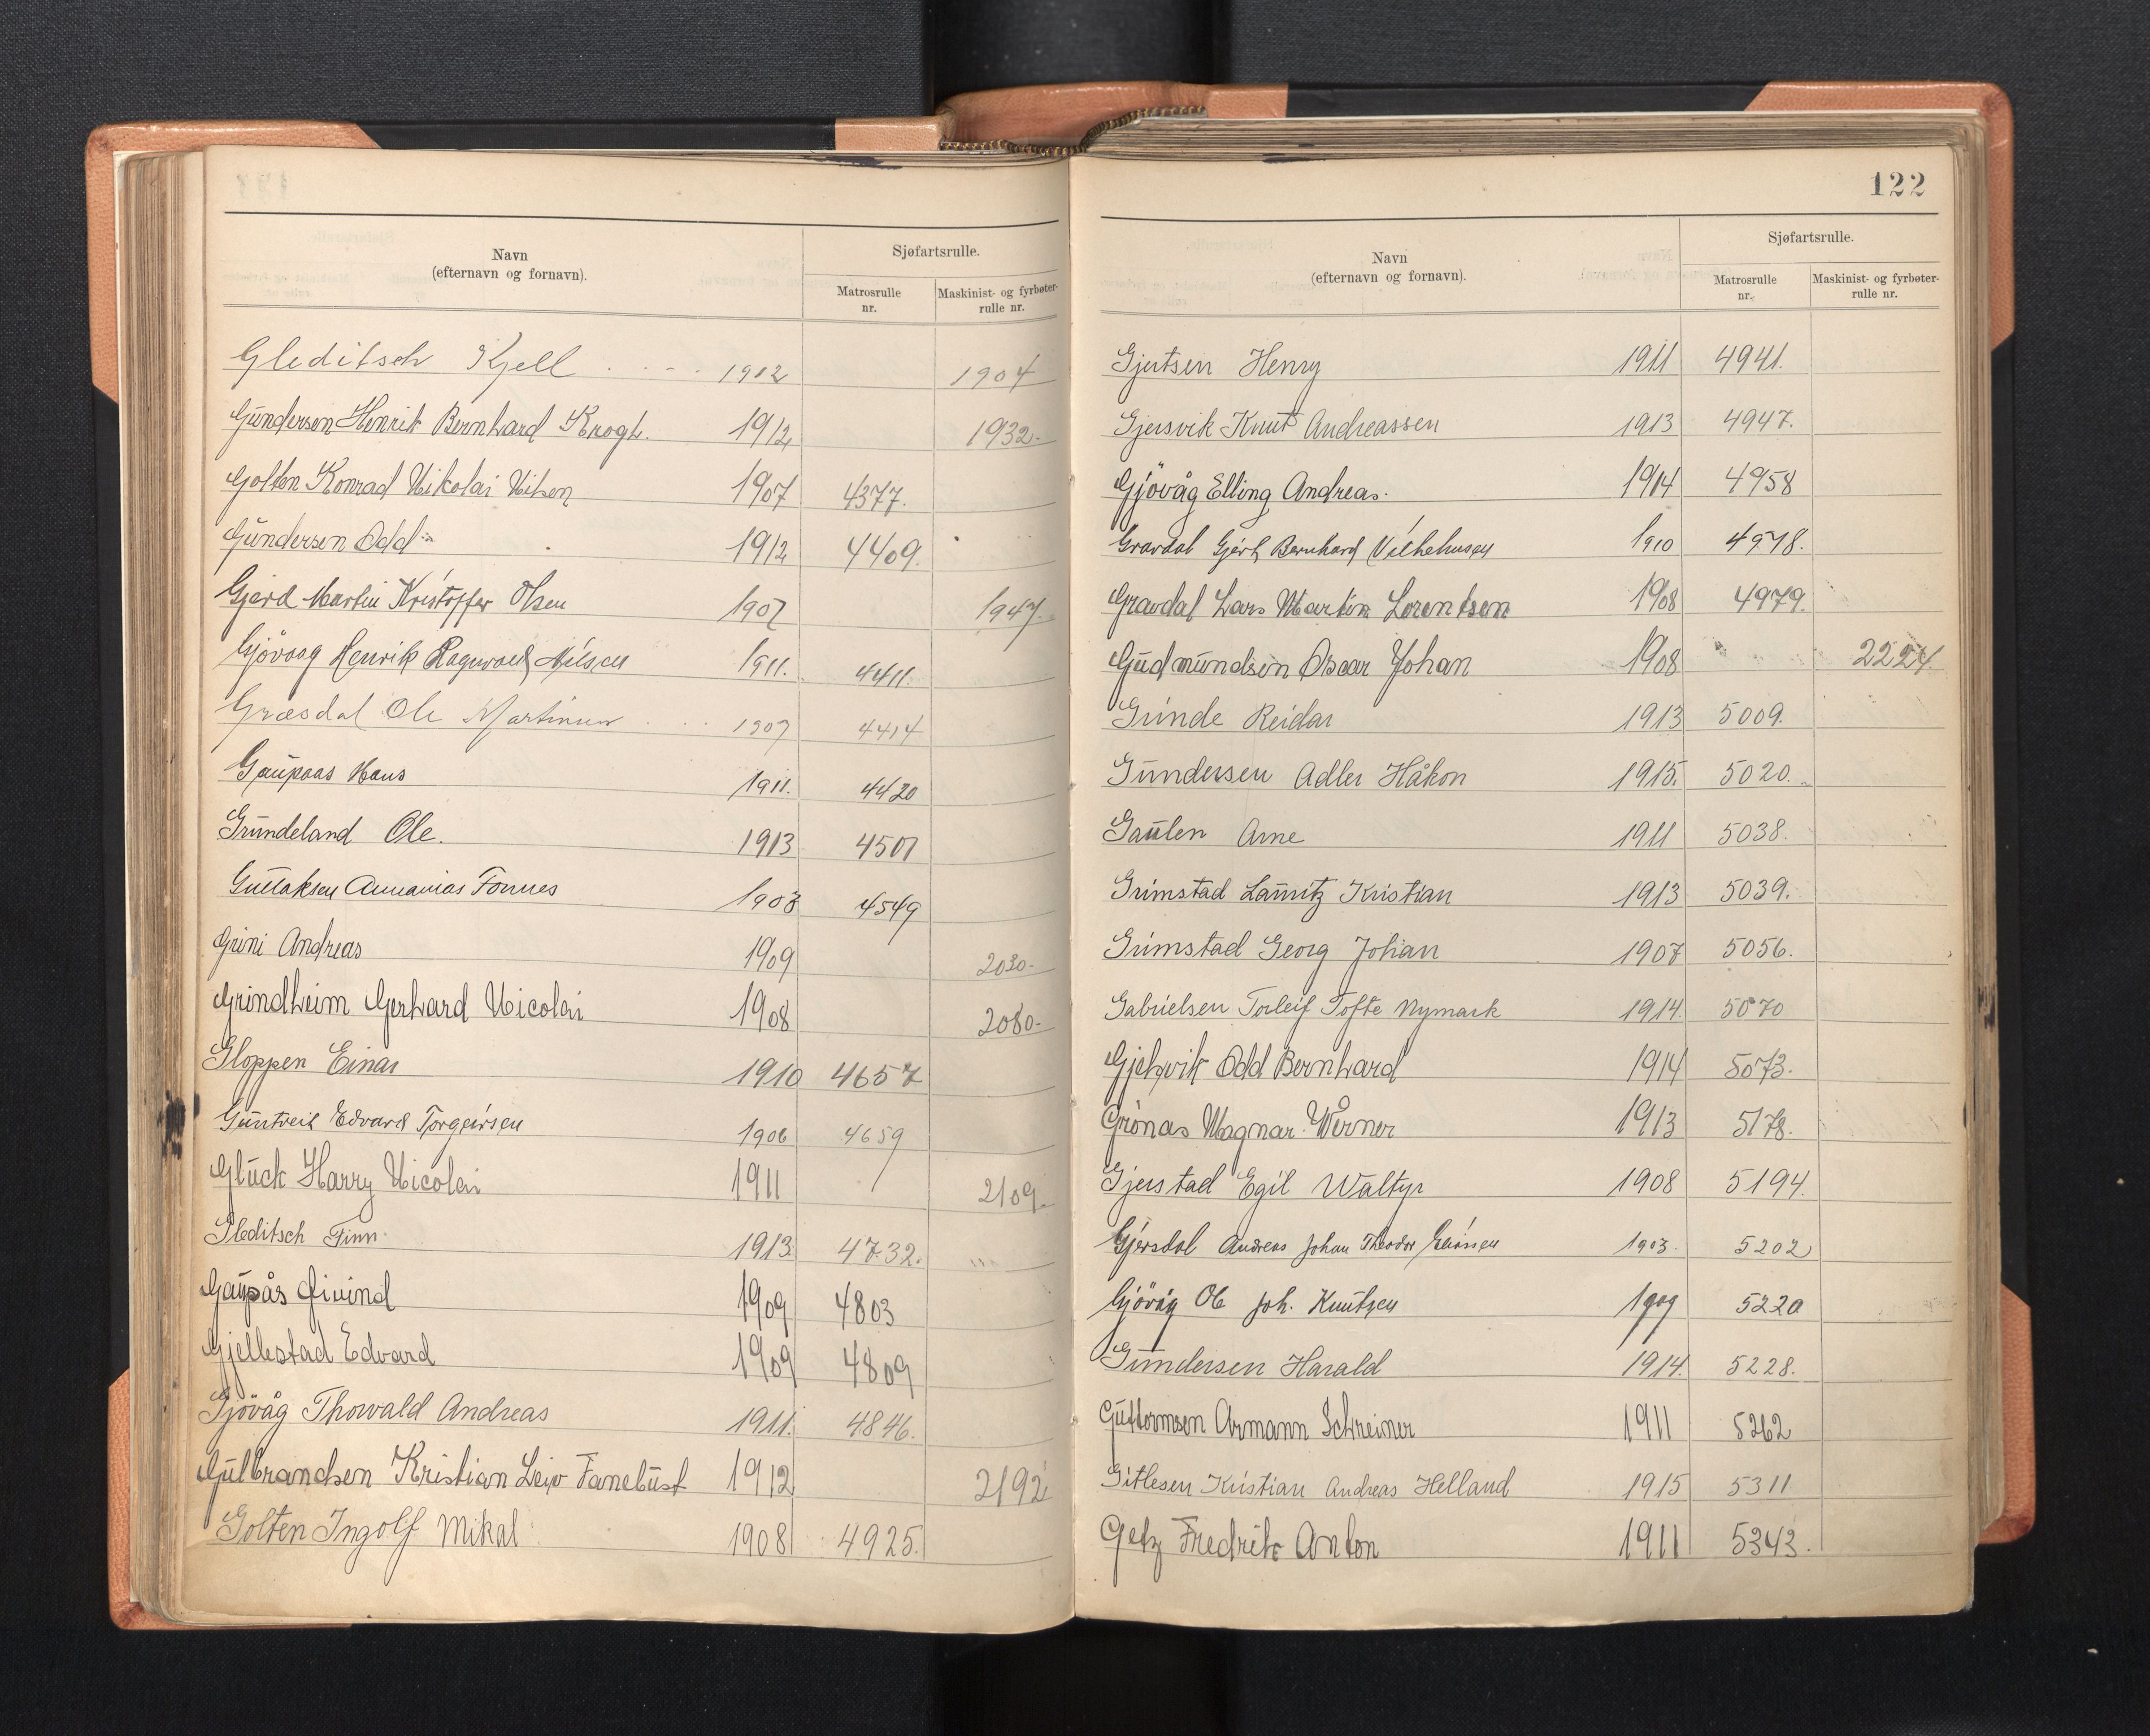 Navn
(efternavn og fornavn).
Sjøfartsrulle.
Matrosrulle
nr.
Maskinist- og fyrbøter-
rulle nr.
Gleditsch Kjell 1912 1904
Gundersen Henrik Bernhard Krogh. 1912 1932.
Golten Konrad Nikolai Nilsen 1907 4377.
Gundersen Odd 1912 4409.
Gjerd Martin Kristoffer Olsen 1907 1947.
Gjövaag Henrik Ragnvald Nilsen 1911. 4411.
Græsdal Ole Martinus 1907 4414
Gaupaas Hans 1911. 4420
Grundeland Ole. 1913 4501
Gullaksen Annanias Fonnes 1903 4549
Grini Andreas 1909 2030.
Grindheim Gerhard Nicolai 1908 2080.
Gloppen Einar 1910 4657
Guntveit Edvard Torgeirsen 1906 4659
Glück Harry Nicolai 1911 2109.
Gleditsch Finn 1913. 4732.
Gaupås Øivind 1909 4803
Gjellestad Edvard 1909 4809
Gjövåg Thorvald Andreas 1911. 4846.
Gulbrandsen Kristian Leiv Fanebust 1912 2192
Golten Ingolf Mikal 1908 4925.
122
Navn
(efternavn og fornavn).
Sjøfartsrulle.
Matrosrulle
nr.
Maskinist- og fyrbøter-
rulle nr.
Gjertsen Henry 1911 4941.
Gjersvik Knut Andreassen 1913 4947.
Gjövåg Elling Andreas. 1914 4958
Gravdal Gjert Bernhard 1910 4978.
Gravdal Lars Martin Lorentsen 1908 4979.
Gudmundsen Oscar Johan 1908 2224.
Grinde Reidar 1913 5009.
Gundersen Adler Håkon 1915. 5020.
Gaulen Arne 1911 5038.
Grimstad Lauritz Kristian 1913 5039.
Grimstad Georg Johan 1907 5056.
Gabrielsen Torleif Tofte Nymark 1914. 5070
Gjelsvik Odd Bernhard 1914 5073.
Grönas Magnar Werner 1913 5178.
Gjerstad Egil Waltyr 1908 5194.
Gjersdal Andreas Johan Theodor 1903. 5202
Gjövåg Ole Joh. Knutsen 1909 5220
Gundersen Harald 1914. 5228.
Guttormsen Armann Schreiner 1911 5262
Gitlesen Kristian Andreas Helland 1915 5311
Getz Fredrik Anton 1911 5343.